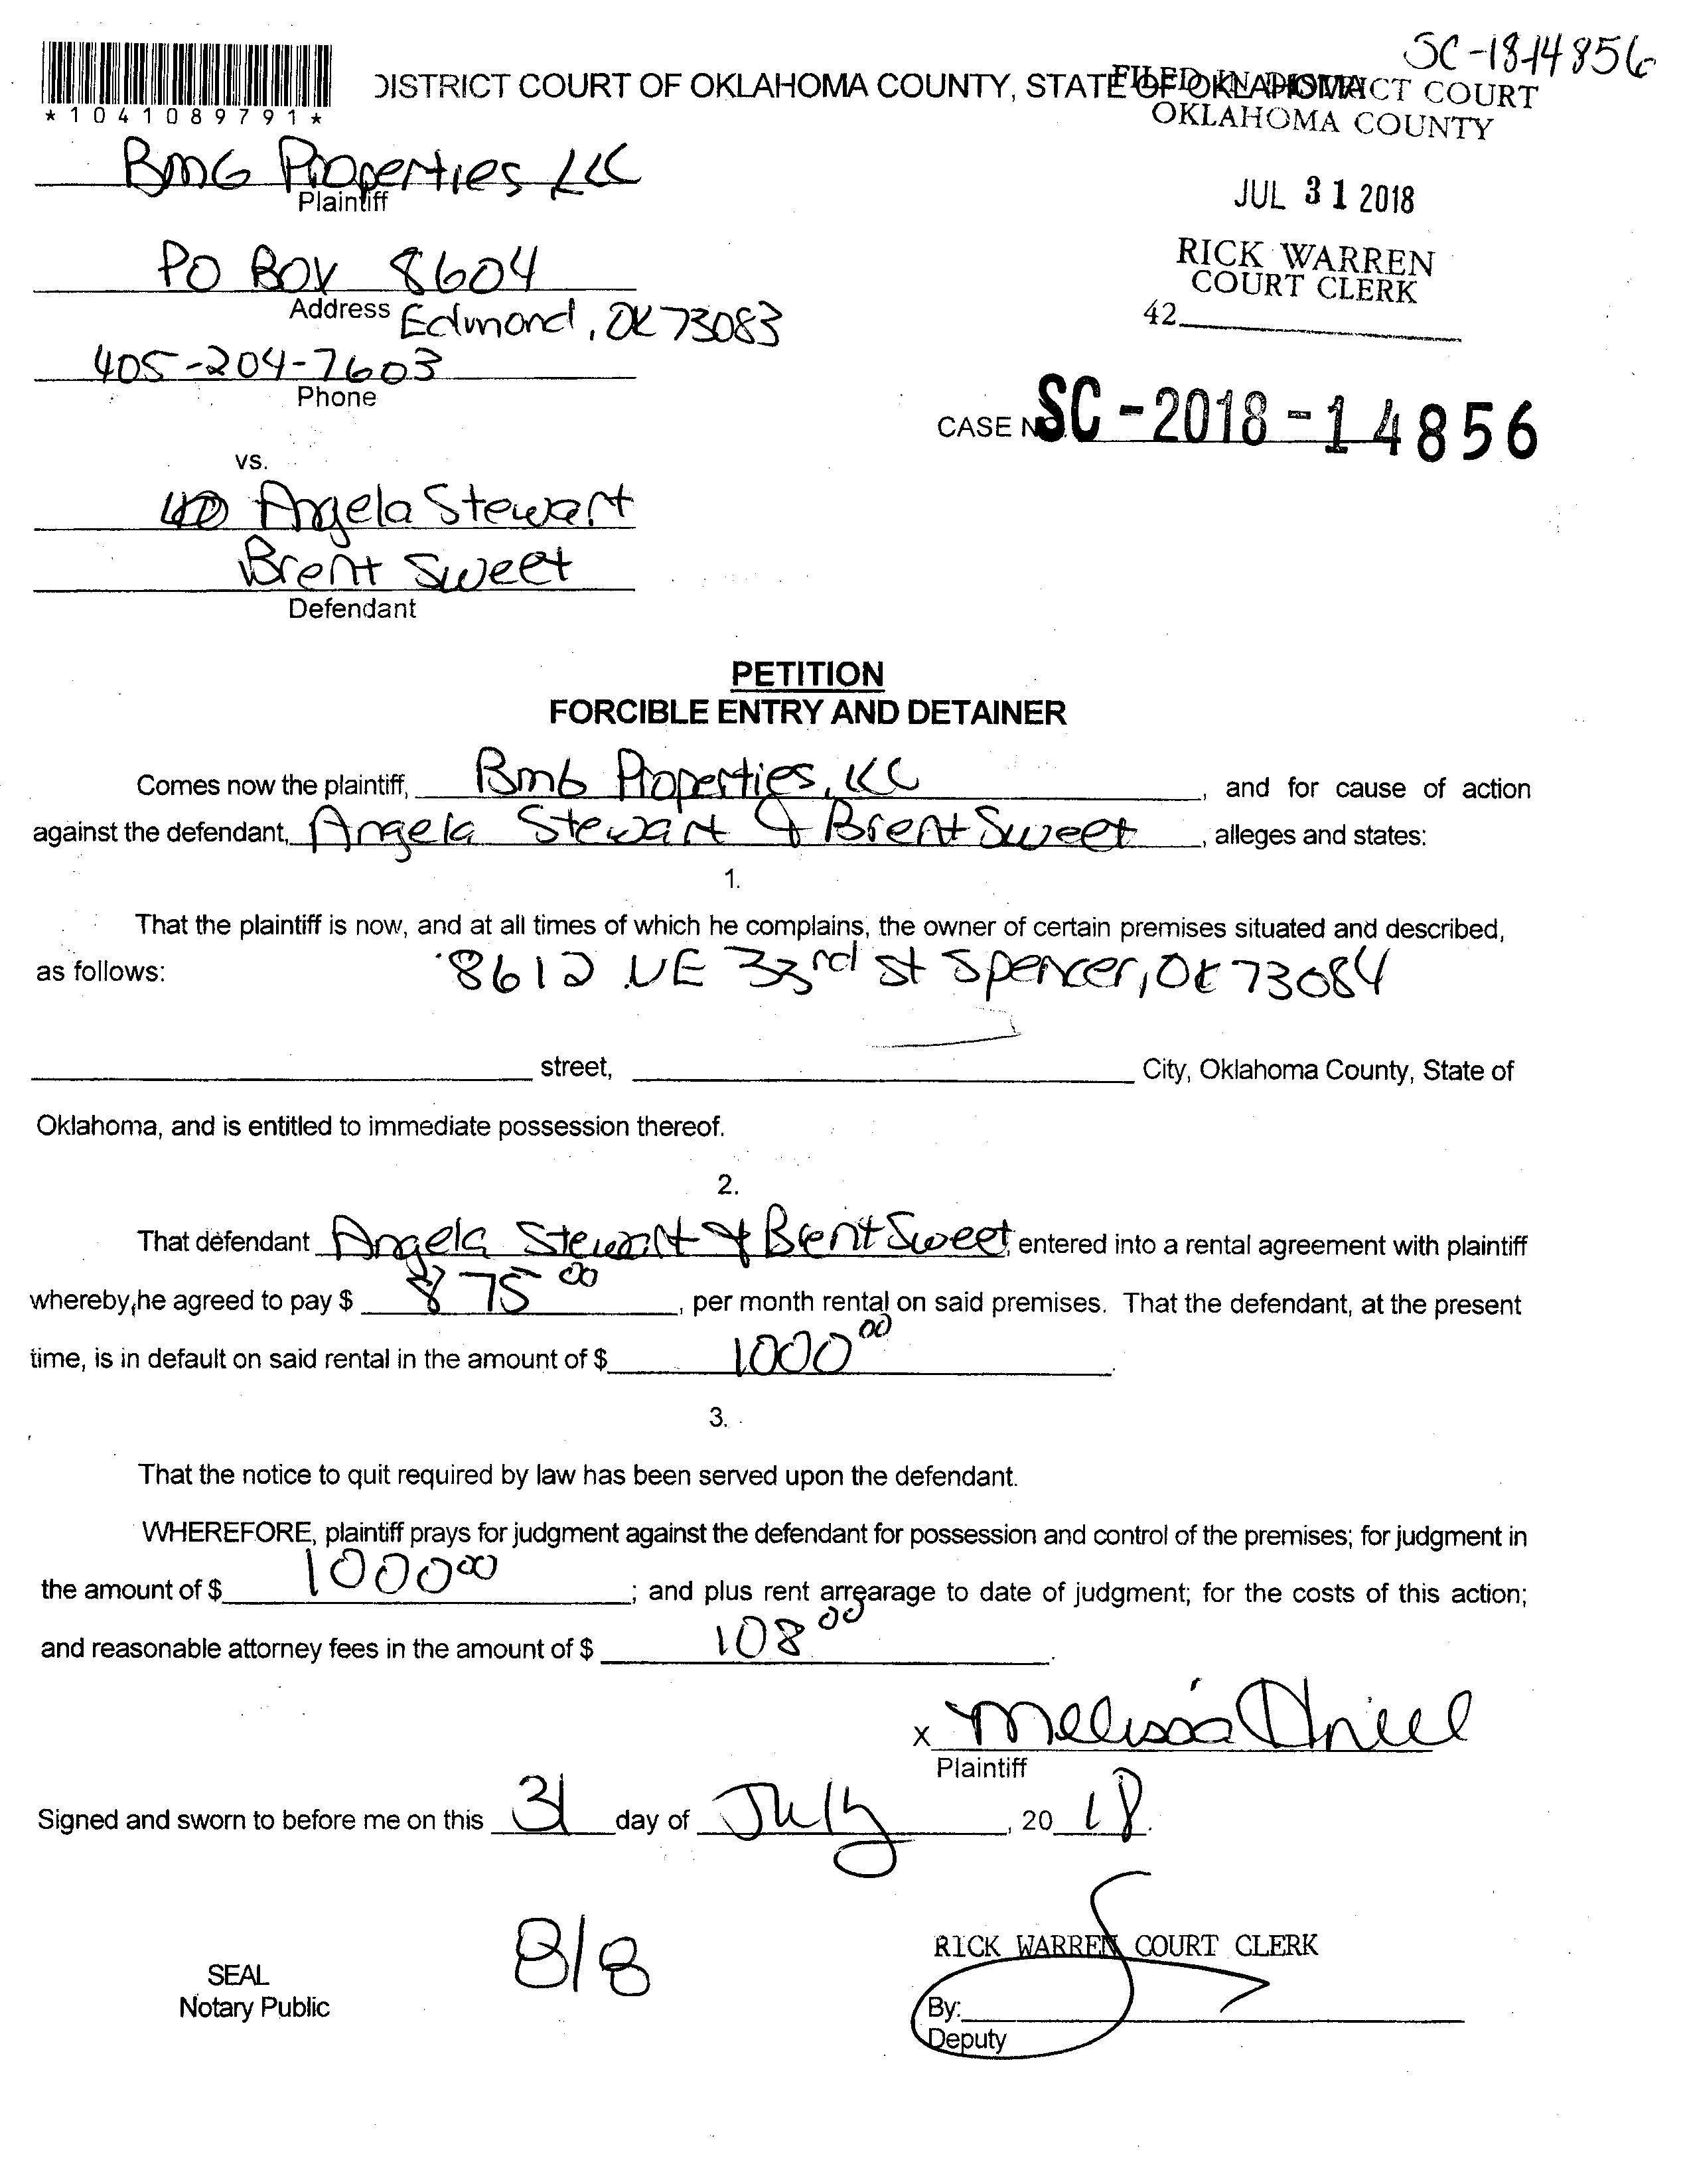 SC-18-14856
DISTRICT COURT OF OKLAHOMA COUNTY, STATE OF OKLAHOMA
FILED IN DISTRICT COURT
OKLAHOMA COUNTY
*1041089791*
BMG Properties LLC
Plaintiff
JUL 31 2018
RICK WARREN
COURT CLERK
42
PO BOX 8604
Address
Edmond, OK 73083
405-204-7603
Phone
CASE NO. SC-2018-14856
vs.
Angela Stewart
Brent Sweet
Defendant
PETITION
FORCIBLE ENTRY AND DETAINER
Comes now the plaintiff, BMG Properties, LLC, and for cause of action
against the defendant, Angela Stewart & Brent Sweet, alleges and states:
1.
That the plaintiff is now, and at all times of which he complains, the owner of certain premises situated and described,
as follows: 8612 NE 33rd St Spencer, OK 73084
street, City, Oklahoma County, State of
Oklahoma, and is entitled to immediate possession thereof.
2.
That defendant Angela Stewart & Brent Sweet, entered into a rental agreement with plaintiff
whereby he agreed to pay $ 875 00, per month rental on said premises. That the defendant, at the present
time, is in default on said rental in the amount of $ 1000 00.
3.
That the notice to quit required by law has been served upon the defendant.
WHEREFORE, plaintiff prays for judgment against the defendant for possession and control of the premises; for judgment in
the amount of $ 1000 00; and plus rent arrearage to date of judgment; for the costs of this action;
and reasonable attorney fees in the amount of $ 108 00.
x Melissa
Plaintiff
Signed and sworn to before me on this 31 day of July, 20 18.
8/8
RICK WARREN COURT CLERK
SEAL
Notary Public
By:
Deputy